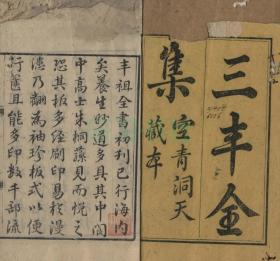 三丰全
集
空青洞天
藏本
丰祖全書初刊已行海内
矣養生妙道多具其中閩
中高士朱桐蓀見而悦之
恐其板多經刷印易於漫
漶乃翻為袖珍板式以便
行篋且能多印數千部流